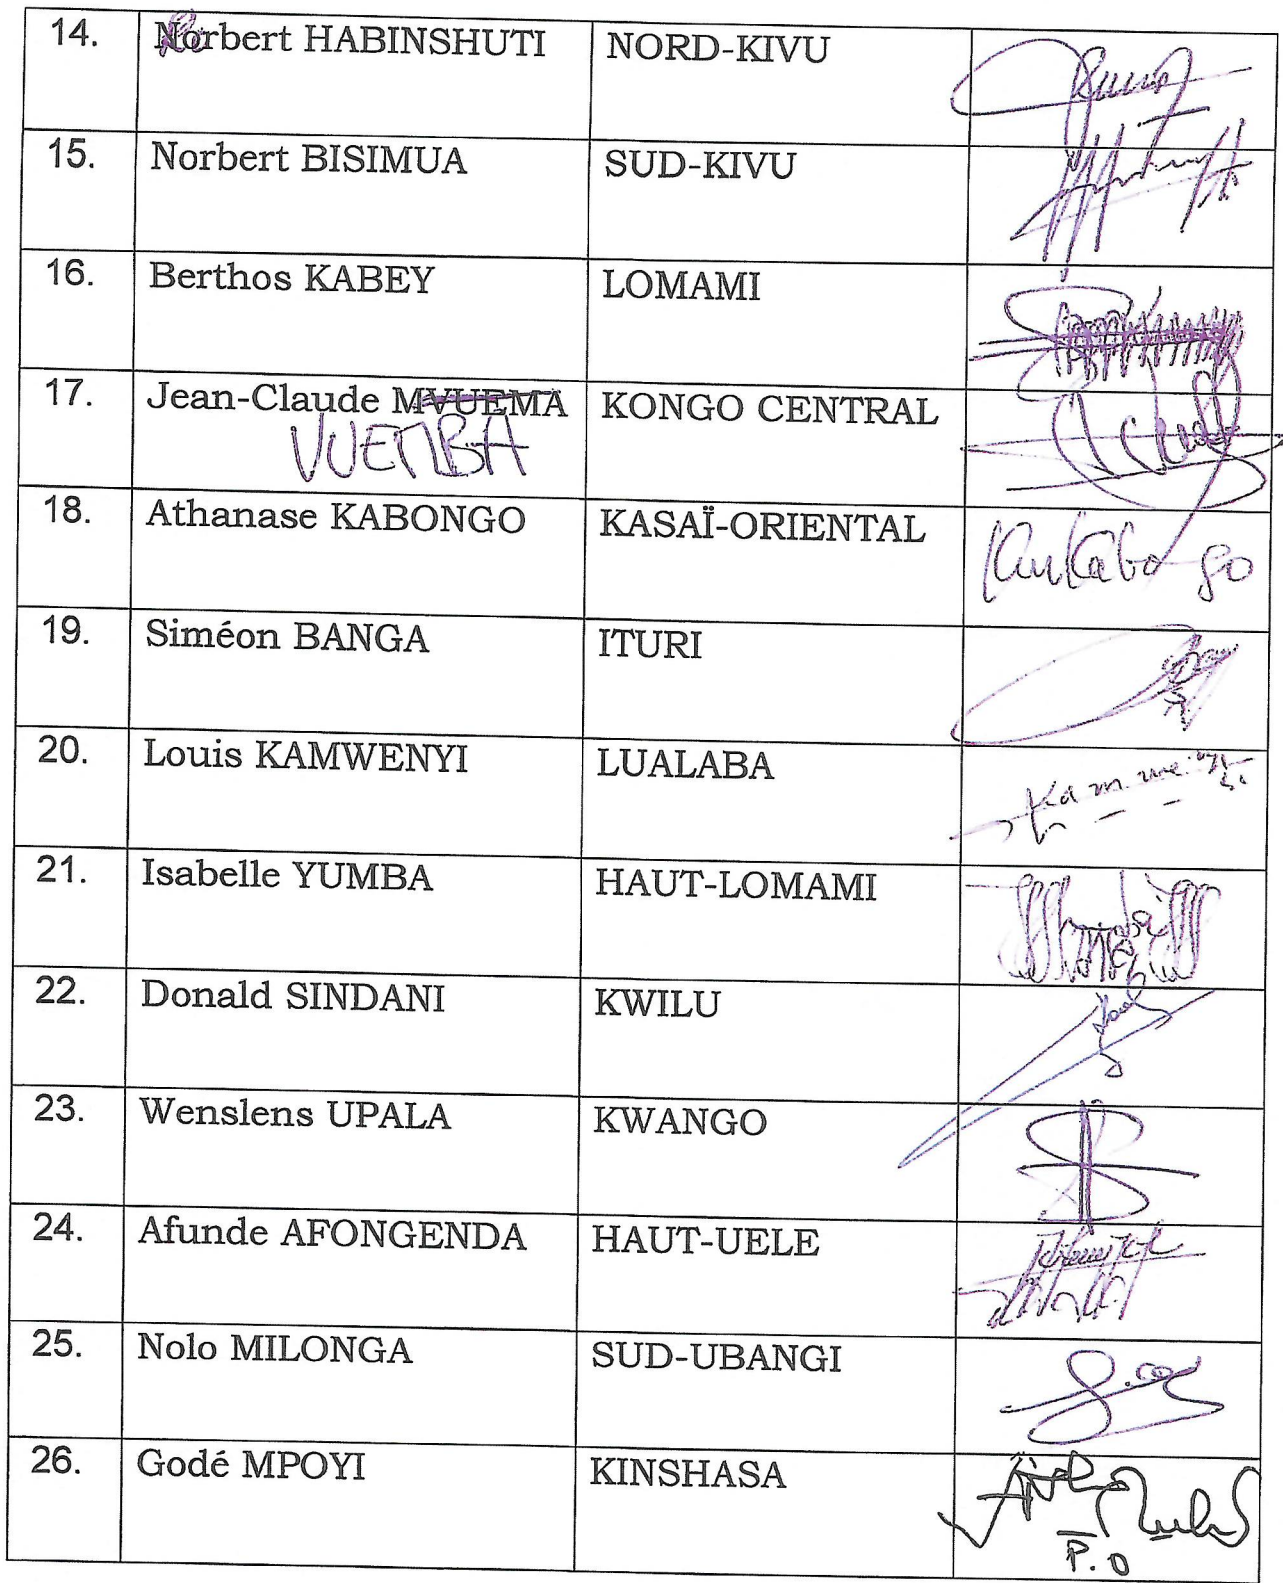 14. Norbert HABINSHUTI NORD-KIVU
15. Norbert BISIMUA SUD-KIVU
16. Berthos KABEY LOMAMI
17. Jean-Claude MVUEMA KONGO CENTRAL
VUEMBA
18. Athanase KABONGO KASAÏ-ORIENTAL
19. Siméon BANGA ITURI
20. Louis KAMWENYI LUALABA
21. Isabelle YUMBA HAUT-LOMAMI
22. Donald SINDANI KWILU
23. Wenslens UPALA KWANGO
24. Afunde AFONGENDA HAUT-UELE
25. Nolo MILONGA SUD-UBANGI
26. Godé MPOYI KINSHASA
P.O